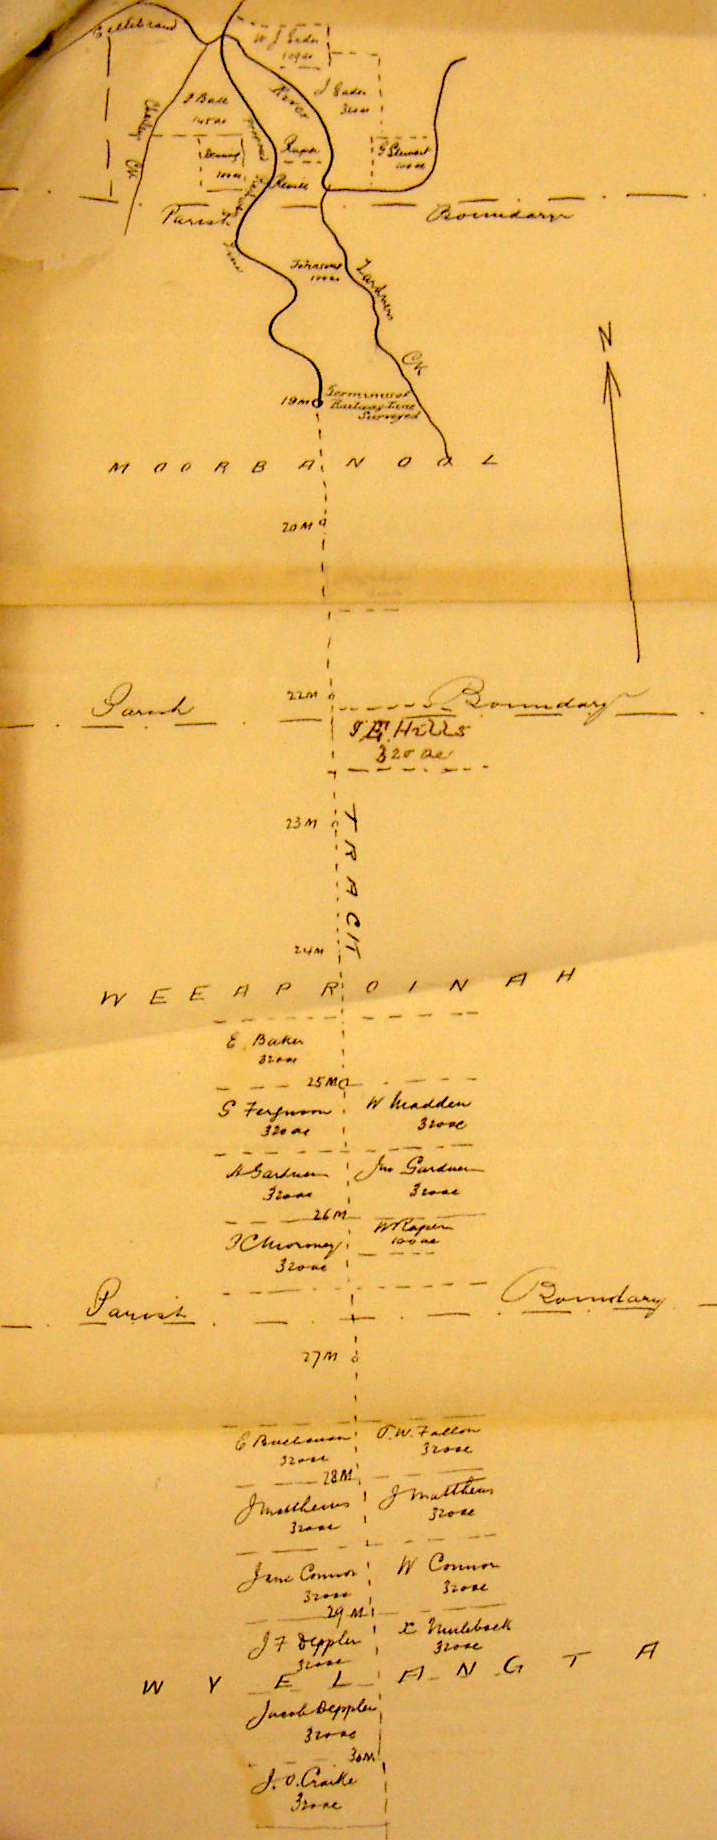 Gellibrand
W J Eader
109 ac
River
J Eader
320 ac
J Ball
145 ac
Charley
CK
G Stewart
100 ac
100 ac
Line
Parish
Boundary
Johnsons
100 ac
Lardners
CK
N
19M
Terminus of
Railway Line
Surveyed
MOORBANOOL
20M
22M
Parish
Boundary
J E. Hills
320 ac
23M
TRACK
24M
WEEAPROINAH
E. Baker
320ac
25M
S Ferguson
320ac
W Madden
320ac
A Gardner
320ac
Jno Gardner
320ac
26M
W Raper
100ac
320ac
Parish
Boundary
27M
E Buchanan
320ac
T. W. Fallon
320ac
28M
J Matthews
320ac
J Matthews
320ac
Jane Connor
320ac
W Connor
320ac
29M
J F Deppler
320ac
320ac
WYELANGTA
Jacob Deppler
320ac
30M
J. O. Craike
320ac